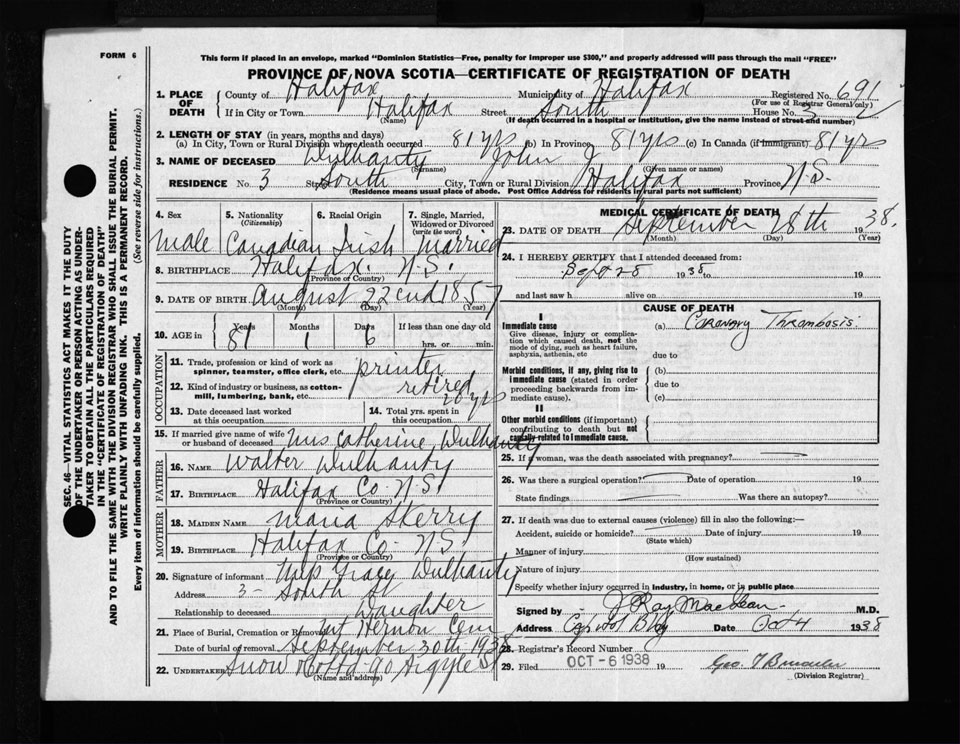 FORM 6
This form if placed in an envelope, marked "Dominion Statistics—Free, penalty for improper use $300," and properly addressed will pass through the mail "FREE"
PROVINCE OF NOVA SCOTIA—CERTIFICATE OF REGISTRATION OF DEATH
1. PLACE OF DEATH County of Halifax Municipality of Halifax Registered No. 691
(For use of Registrar General only)
If in City or Town Halifax (Name) Street South House No. 3
(If death occurred in a hospital or institution, give the name instead of street and number)
2. LENGTH OF STAY (in years, months and days)
(a) In City, Town or Rural Division where death occurred 81 yrs (b) In Province 81 yrs (c) In Canada (if immigrant) 81 yrs
3. NAME OF DECEASED Dulhanty John J
(Surname) (Given name or names)
RESIDENCE No. 3 Street South City, Town or Rural Division Halifax Province N.S.
(Residence means usual place of abode. Post Office Address for residents in rural parts not sufficient)
4. Sex 5. Nationality (Citizenship) 6. Racial Origin 7. Single, Married, Widowed or Divorced (write the word)
Male Canadian Irish Married
8. BIRTHPLACE Halifax. N.S.
(Province or Country)
9. DATE OF BIRTH August 22nd 1857
(Month) (Day) (Year)
10. AGE in Years Months Days If less than one day old
81 1 6 hrs. or min.
OCCUPATION
11. Trade, profession or kind of work as spinner, teamster, office clerk, etc. printer
12. Kind of industry or business, as cotton-mill, lumbering, bank, etc. retired 20 yrs
13. Date deceased last worked at this occupation
14. Total yrs. spent in this occupation
15. If married give name of wife or husband of deceased Mrs Catherine Dulhanty
FATHER
16. NAME Walter Dulhanty
17. BIRTHPLACE Halifax Co. N.S.
(Province or Country)
MOTHER
18. MAIDEN NAME Maria Skerry
19. BIRTHPLACE Halifax Co. N.S
(Province or Country)
20. Signature of informant Miss Tracy Dulhanty
Address 3 - South St
Relationship to deceased Daughter
21. Place of Burial, Cremation or Removal Mt Hernon Cem
Date of burial or removal September 30th 1938
22. UNDERTAKER Snow & Co Ltd 90 Argyle St
(Name and address)
MEDICAL CERTIFICATE OF DEATH
23. DATE OF DEATH September 28th 1938.
(Month) (Day) (Year)
24. I HEREBY CERTIFY that I attended deceased from:
Sept 28 1938 to 19
and last saw h alive on 19
CAUSE OF DEATH
I
Immediate cause (a) Coronary Thrombosis.
Give disease, injury or complication which caused death, not the mode of dying, such as heart failure, asphyxia, asthenia, etc
due to
Morbid conditions, if any, giving rise to immediate cause (stated in order proceeding backwards from immediate cause).
(b)
due to
(c)
II
Other morbid conditions (if important) contributing to death but not causally related to immediate cause.
25. If a woman, was the death associated with pregnancy?
26. Was there a surgical operation? Date of operation 19
State findings Was there an autopsy?
27. If death was due to external causes (violence) fill in also the following:—
Accident, suicide or homicide? Date of injury 19
(State which)
Manner of injury
(How sustained)
Nature of injury
Specify whether injury occurred in industry, in home, or in public place
Signed by J Ray MacLean M.D.
Address Capitol Bldg Date Oct 4 1938
28. Registrar's Record Number
29. Filed OCT - 6 1938 19
(Division Registrar)
SEC. 46—VITAL STATISTICS ACT MAKES IT THE DUTY
OF THE UNDERTAKER OR PERSON ACTING AS UNDERTAKER TO OBTAIN ALL THE PARTICULARS REQUIRED
IN THE "CERTIFICATE OF REGISTRATION OF DEATH"
AND TO FILE THE SAME WITH THE DIVISION REGISTRAR WHO SHALL ISSUE THE BURIAL PERMIT.
WRITE PLAINLY WITH UNFADING INK. THIS IS A PERMANENT RECORD.
Every item of information should be carefully supplied. (See reverse side for instructions.)